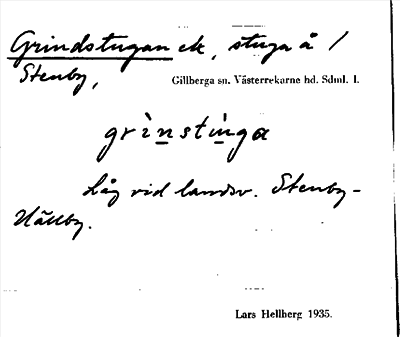 Grindstugan ek, stuga å /
Stenby,
Gillberga sn. Västerrekarne hd. Sdml. l.
grìnstìnga
Låg vid landsv. Stenby-
Hällby.
Lars Hellberg 1935.